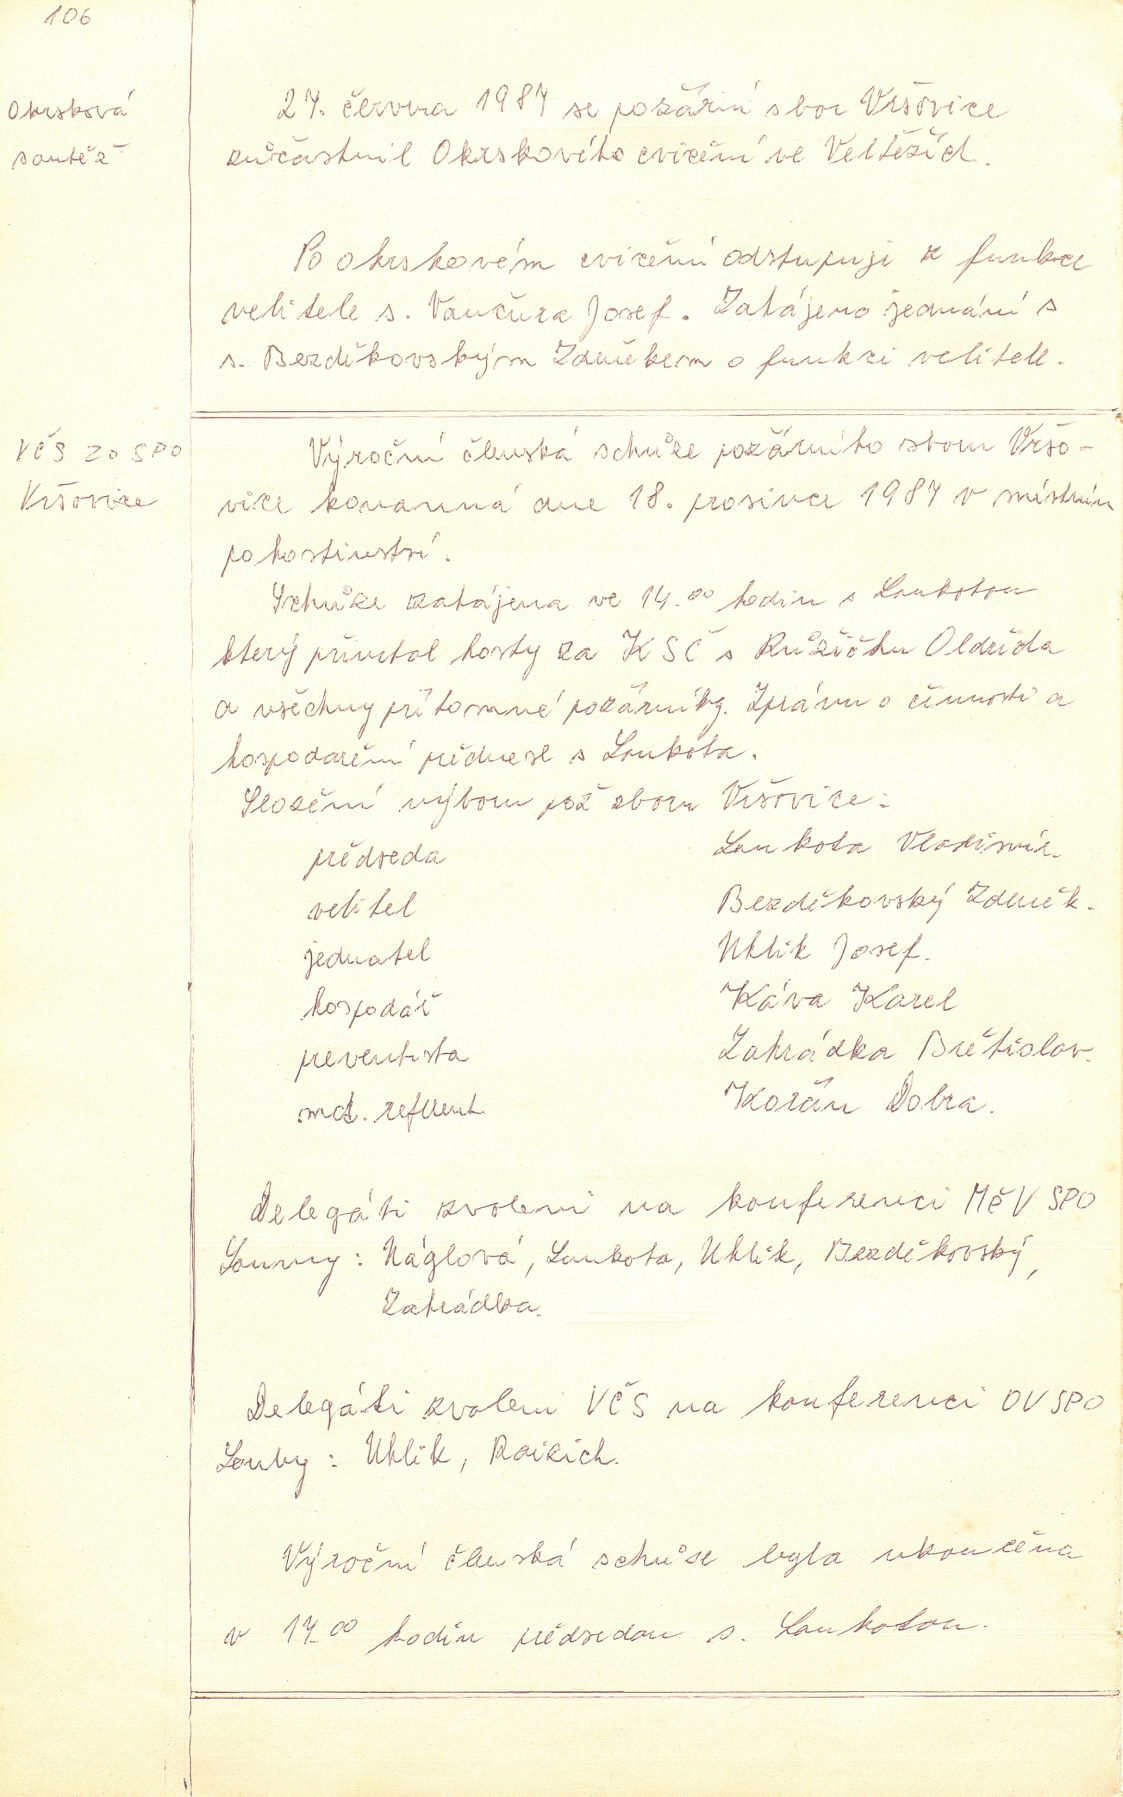 106
Okrsková
soutěž
27. června 1987 se požární sbor Vršovice
zůčastnil Okrskového cvičení ve Veltěžích.
Po okrskovém cvičení odstupuje z funkce
velitele s. Vančura Josef. Zahájeno jednání s
s. Bezděkovským Zdeňkem o funkci velitele.
VČS ZO SPO
Vršovice
Výroční členská schůze požárního sboru Vršo-
vice konanná dne 18. prosince 1987 v místním
pohostinství.
Schůze zahájena ve 14.00 hodin s Loukotou
který přivítal hosty za KSČ s Růžičku Oldřicha
a všechny přítomné požárníky. Zprávu o činnosti a
hospodaření přednesl s Loukota.
Složení výboru pož sboru Vršovice:
předseda Loukota Vladimír.
velitel Bezděkovský Zdeněk.
jednatel Uhlík Josef.
hospodář Káva Karel
preventista Zahrádka Břetislav.
mat. referent. Kořán Dobra.
Delegáti zvoleni na konferenci MěV SPO
Louny: Náglová, Loukota, Uhlík, Bezděkovský,
Zahrádka.
Delegáti zvoleni VČS na konferenci OV SPO
Louby: Uhlík, Raizich.
Výroční členská schůze byla ukončena
v 17.00 hodin předsedou s. Loukotou.